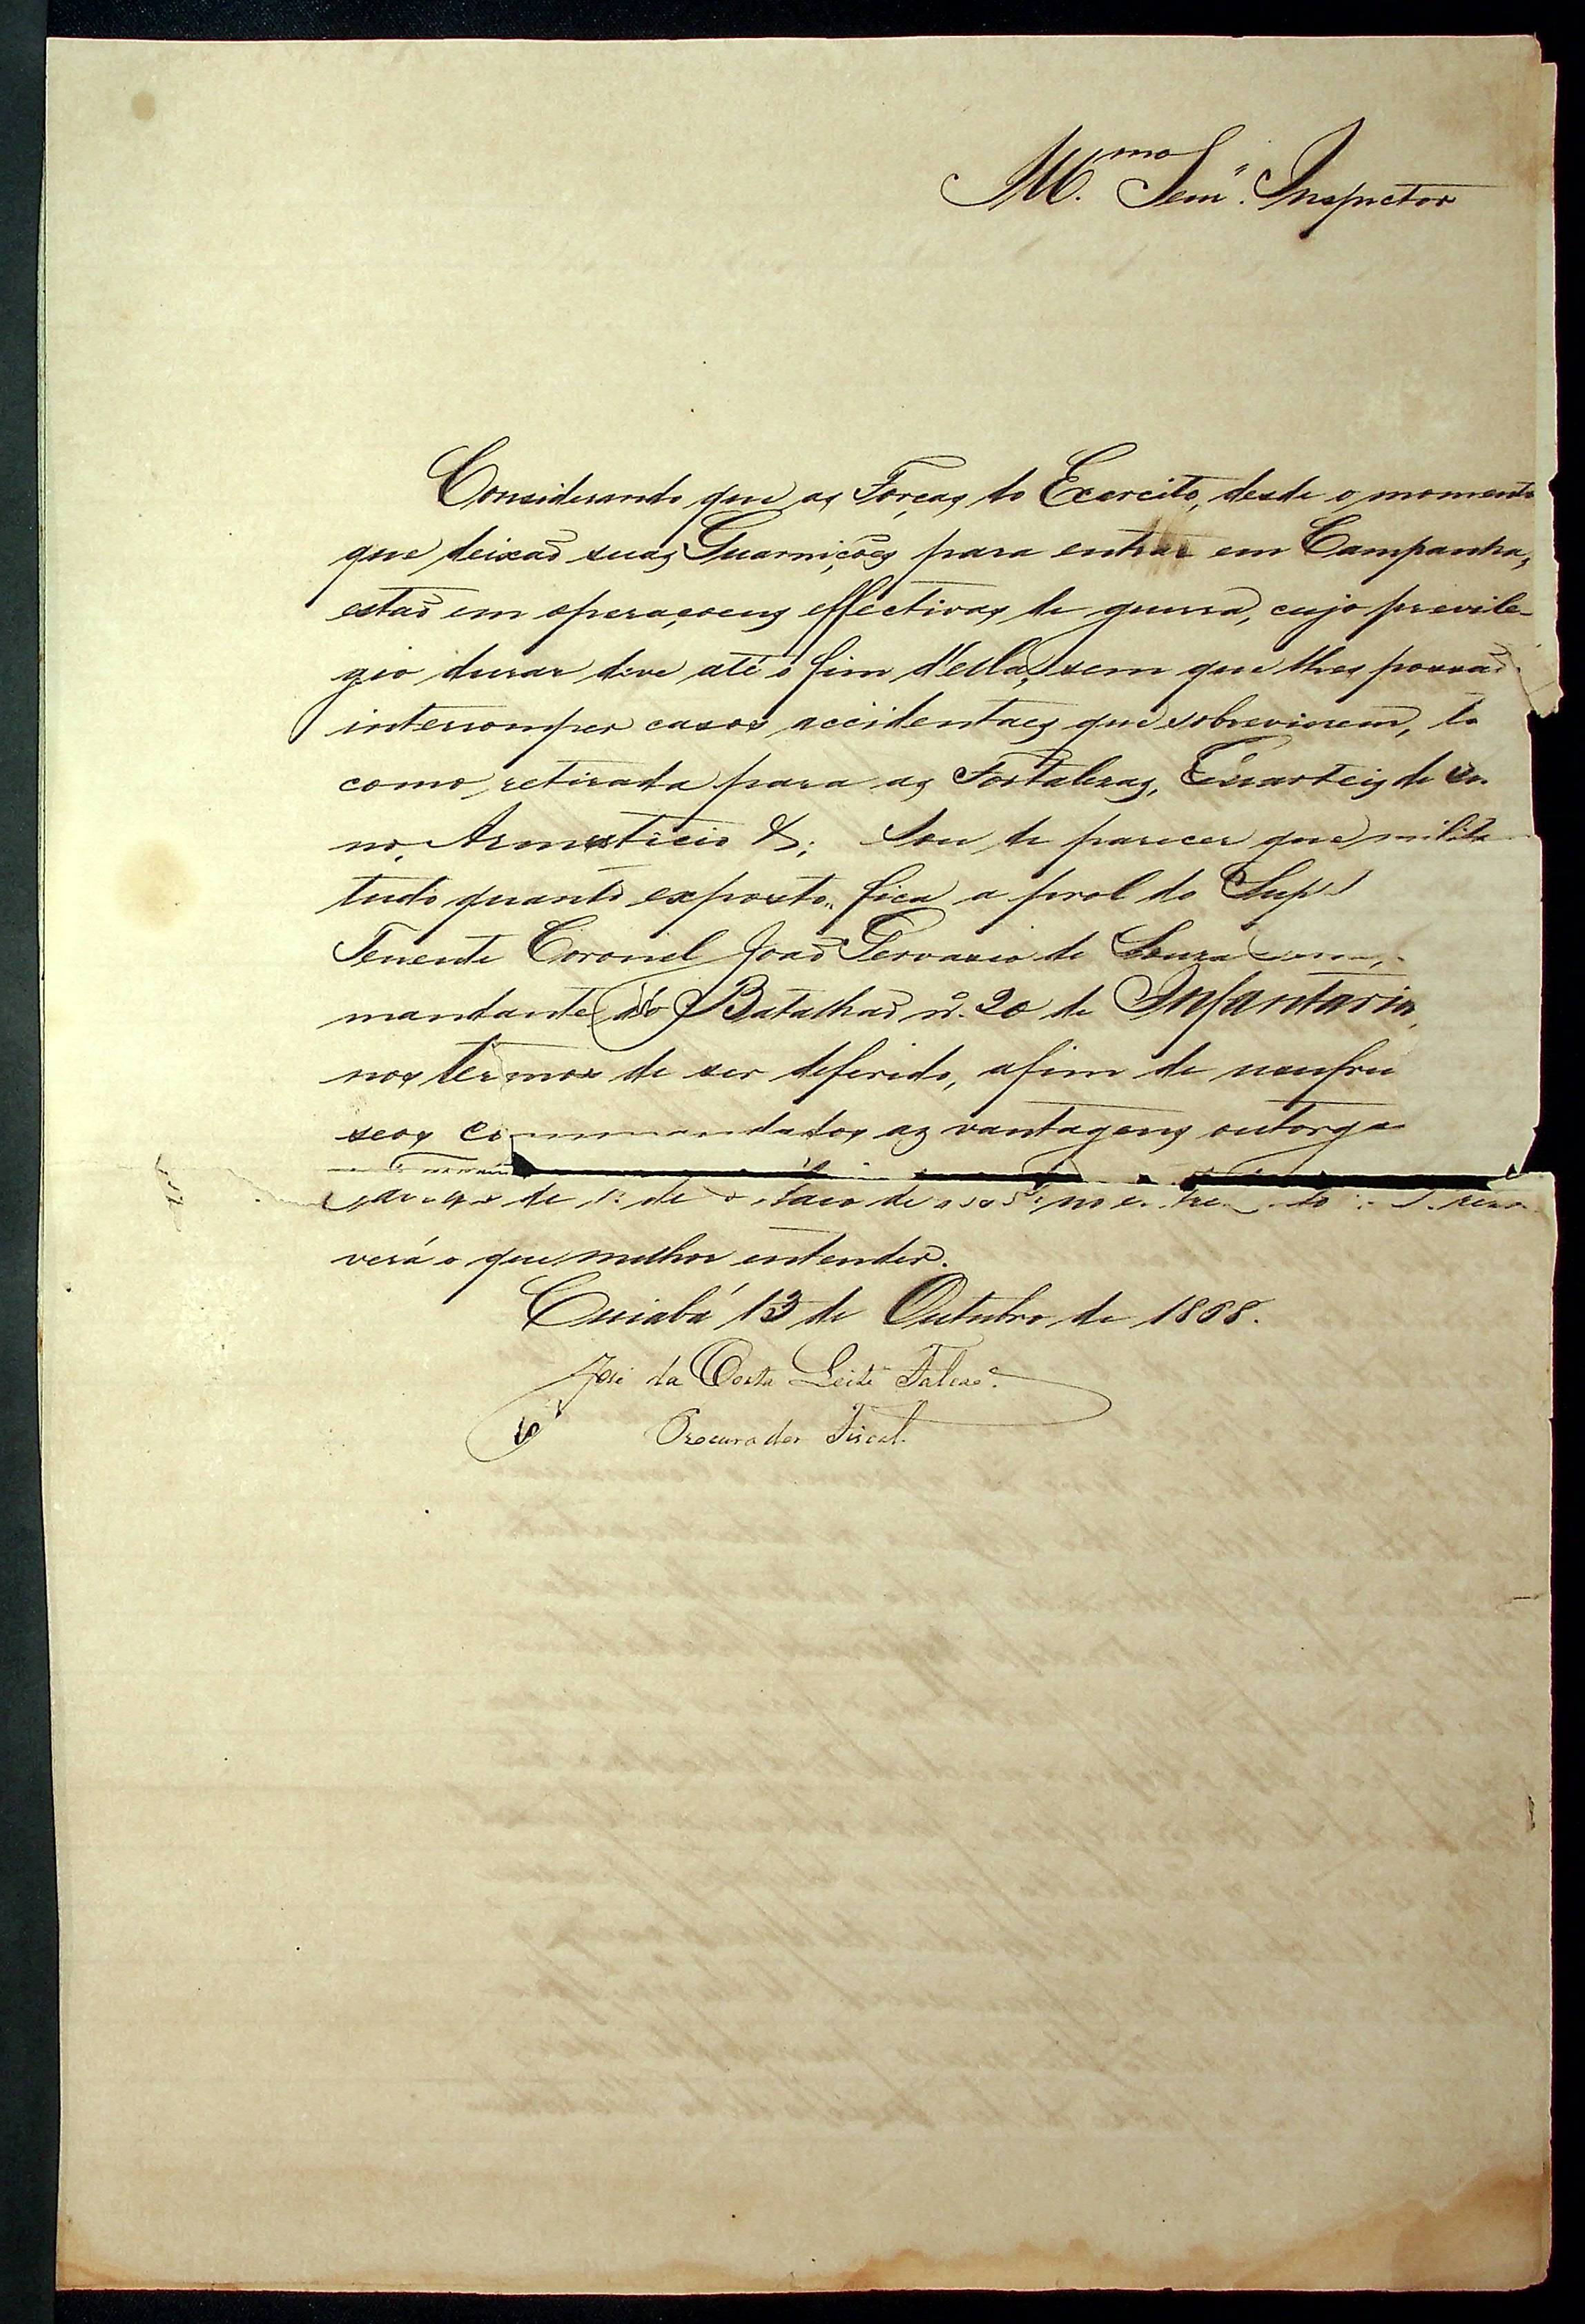 Ill.mo Senr. Inspector
Considerando que as Forças do Exercito, desde o momento
que deixaõ suas Guarnições para entrar em Campanha,
estaõ em operaçoens effectivas de guerra, cujo previle-
gio durar deve até o fim d'ella, sem que lhes possaõ
interromper casos accidentaes que sobrevierem,
como, retirada para as Fortalezas, Quarteis de
no, Armisticio &; Sou de parecer que milita
tudo quanto exposto fica a prol do Sup.
Tenente Coronel Joaõ Gervasio de Souza
mandante do Batalhaõ nº. 20 de Infantaria,
nos termos de ser deferido, afim de usufru
seos commandados as vantagens outorga
de 1º de de
verá o que melhor entender.
Cuiabá 13 de Outubro de 1868.
José da Costa Leite Falcaõ.
Procurador Fiscal.